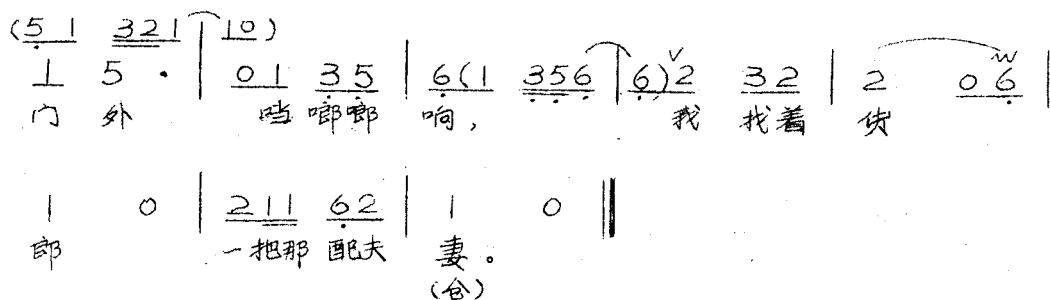 (5 1 321 | 10)
1 5 · | 01 35 | 6(1 356 | 6)2 32 | 2 06 |
门 外 当啷啷 响， 我 找着 货
1 0 | 211 62 | 1 0 ‖
郎 一把那 配夫 妻。
(仓)